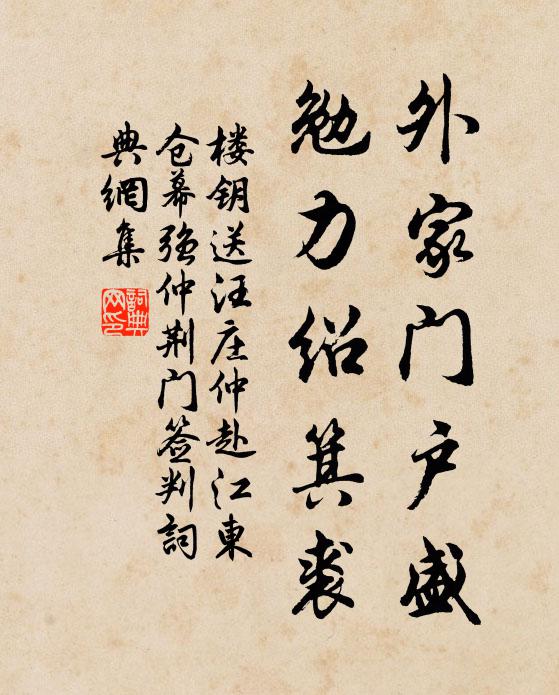 外家门户盛
勉力绍箕裘
楼钥送汪庄仲赴江東
仓幕强仲荆门签判詞
典網集
詞典
网印